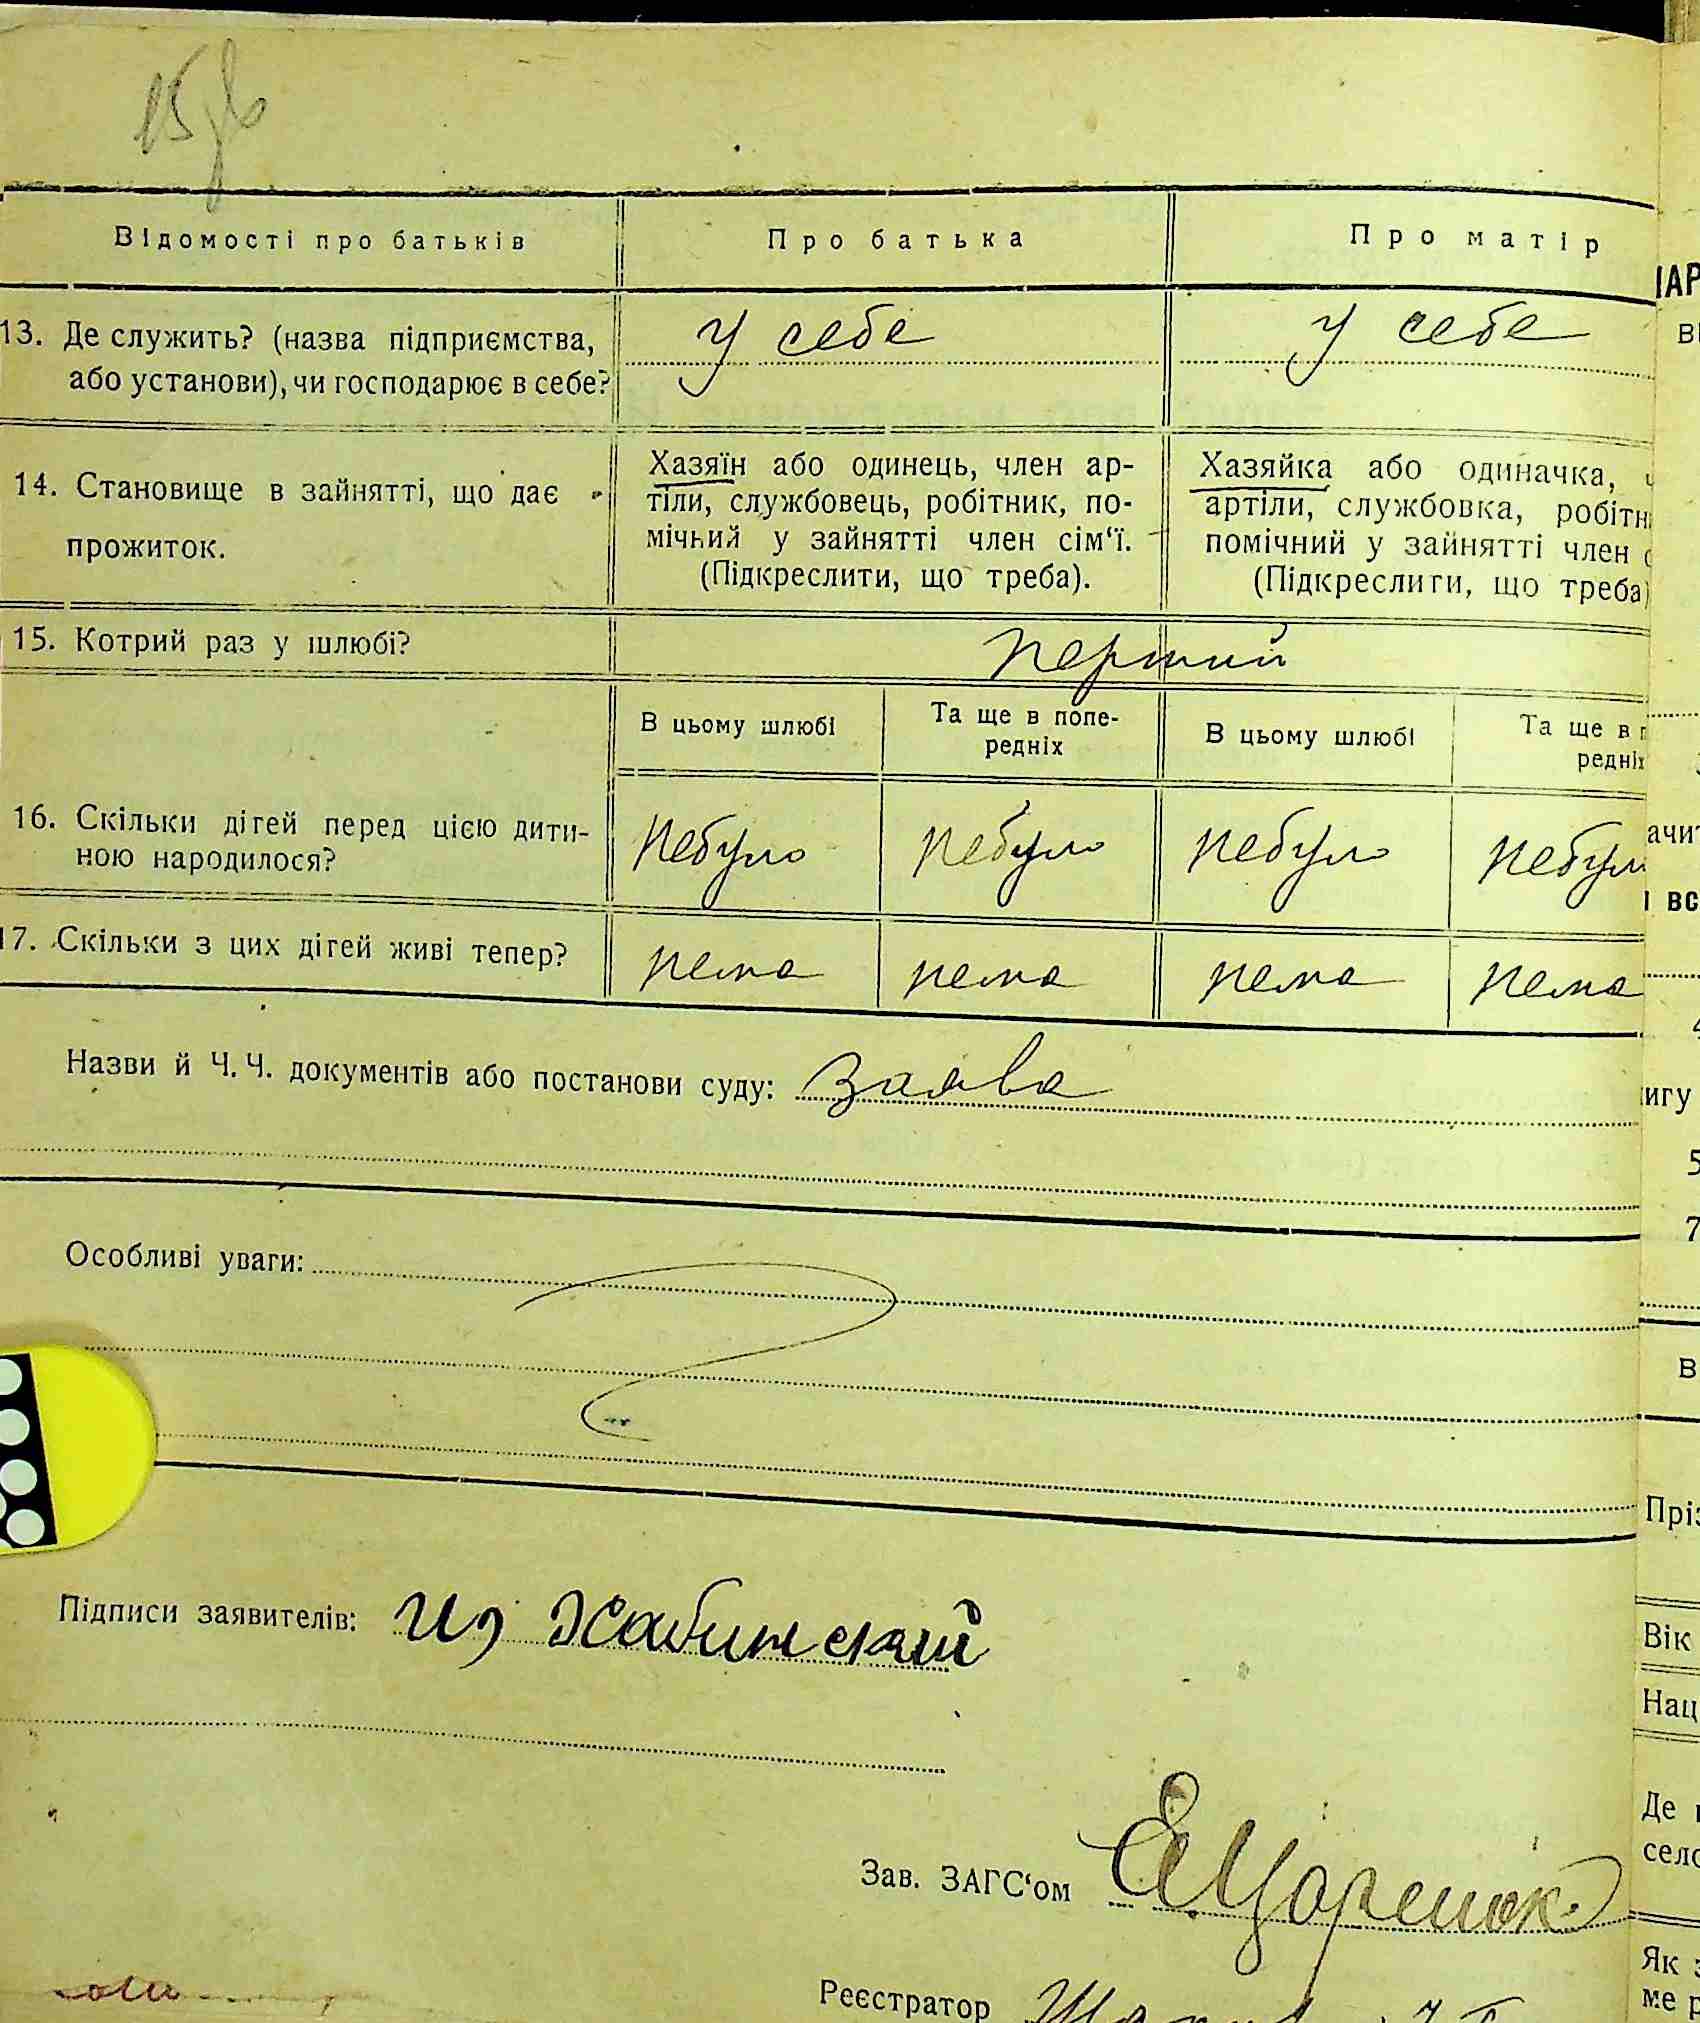 15
Відомості про батьків
Про батька
Про матір
13. Де служить? (назва підприємства,
або установи), чи господарює в себе?
у себе
у себе
14. Становище в зайнятті, що дає
прожиток.
Хазяїн або одинець, член ар-
тіли, службовець, робітник, по-
мічний у зайнятті член сім‘ї.
(Підкреслити, що треба).
Хазяйка або одиначка, ч
артіли, службовка, робітн
помічний у зайнятті член с
(Підкреслити, що треба)
15. Котрий раз у шлюбі?
перший
В цьому шлюбі
Та ще в попе-
редніх
В цьому шлюбі
Та ще в п
редніх
16. Скільки дітей перед цією дити-
ною народилося?
небуло
небуло
небуло
небуло
17. Скільки з цих дітей живі тепер?
нема
нема
нема
нема
Назви й Ч. Ч. документів або постанови суду: заява
Особливі уваги:
Підписи заявителів:
Зав. ЗАГС‘ом
Реєстратор
ачит
вс
игу
5
7
В
Пріз
Вік
Нац
Де
село
Як з
ме р